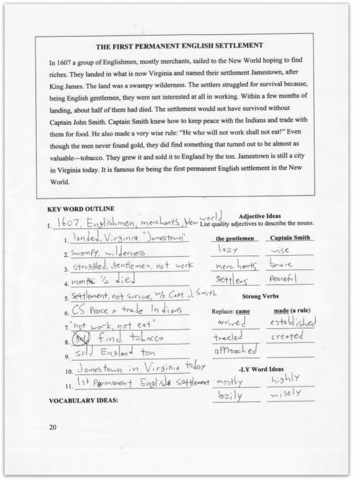 THE FIRST PERMANENT ENGLISH SETTLEMENT
In 1607 a group of Englishmen, mostly merchants, sailed to the New World hoping to find
riches. They landed in what is now Virginia and named their settlement Jamestown, after
King James. The land was a swampy wilderness. The settlers struggled for survival because,
being English gentlemen, they were not interested at all in working. Within a few months of
landing, about half of them had died. The settlement would not have survived without
Captain John Smith. Captain Smith knew how to keep peace with the Indians and trade with
them for food. He also made a very wise rule: "He who will not work shall not eat!" Even
though the men never found gold, they did find something that turned out to be almost as
valuable—tobacco. They grew it and sold it to England by the ton. Jamestown is still a city
in Virginia today. It is famous for being the first permanent English settlement in the New
World.
KEY WORD OUTLINE
I. 1607, Englishmen, merchants, New world
Adjective Ideas
List quality adjectives to describe the nouns.
1. landed, Virginia "Jamestown"
the gentlemen Captain Smith
2. Swampy, wilderness
lazy wise
3. struggled, gentlemen, not work
merchants brave
4. months 1/2 died
settlers Peaceful
5. Settlement, not survive, w/o Capt J. Smith
Strong Verbs
6. CS Peace + trade Indians
Replace: came made (a rule)
7. "not work, not eat"
arrived established
8. find tobacco
traveled created
9. sold England ton
approached
10. Jamestown in Virginia today
-LY Word Ideas
11. 1st Permanent English settlement
mostly highly
lazily wisely
VOCABULARY IDEAS:
20